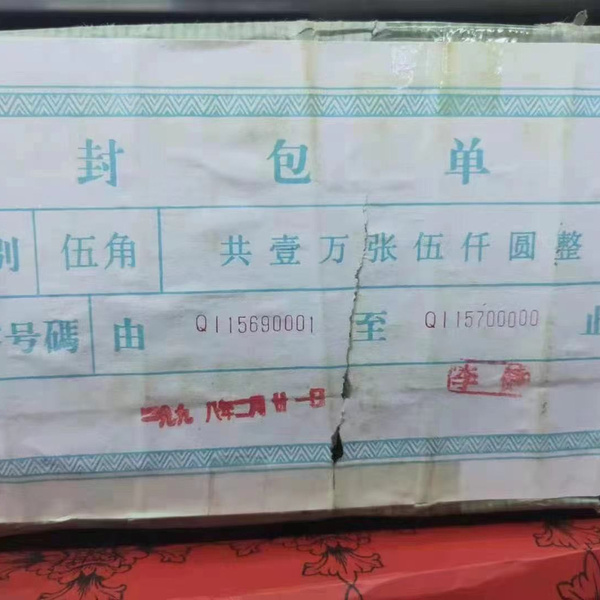 封包单
别 伍角 共壹万张伍仟圆整
号碼 由 QI15690001 至 QI15700000 止
一九九八年二月廿一日